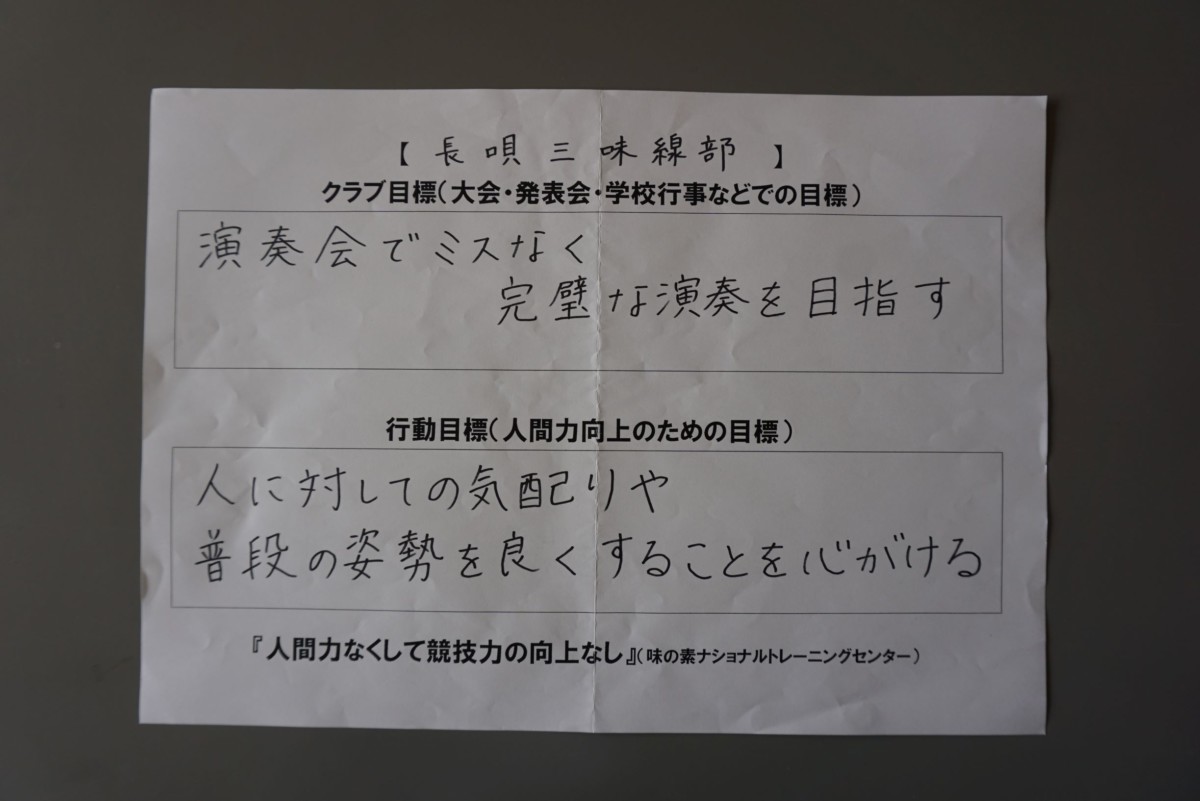 【 長唄三味線部 】
クラブ目標（大会・発表会・学校行事などでの目標）
演奏会でミスなく
完璧な演奏を目指す
行動目標（人間力向上のための目標）
人に対しての気配りや
普段の姿勢を良くすることを心がける
『人間力なくして競技力の向上なし』（味の素ナショナルトレーニングセンター）